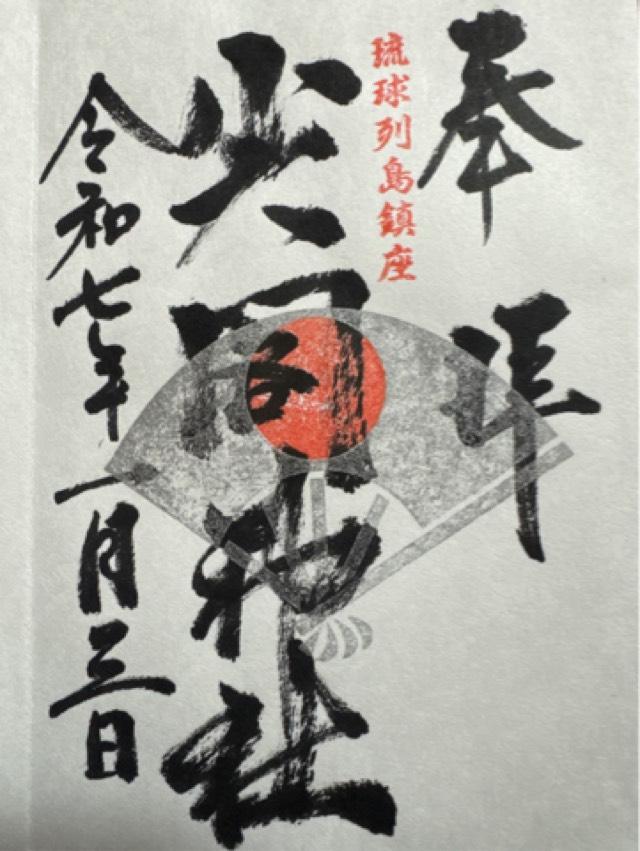 奉拝
琉球列島鎮座
尖閣神社
令和七年一月三日